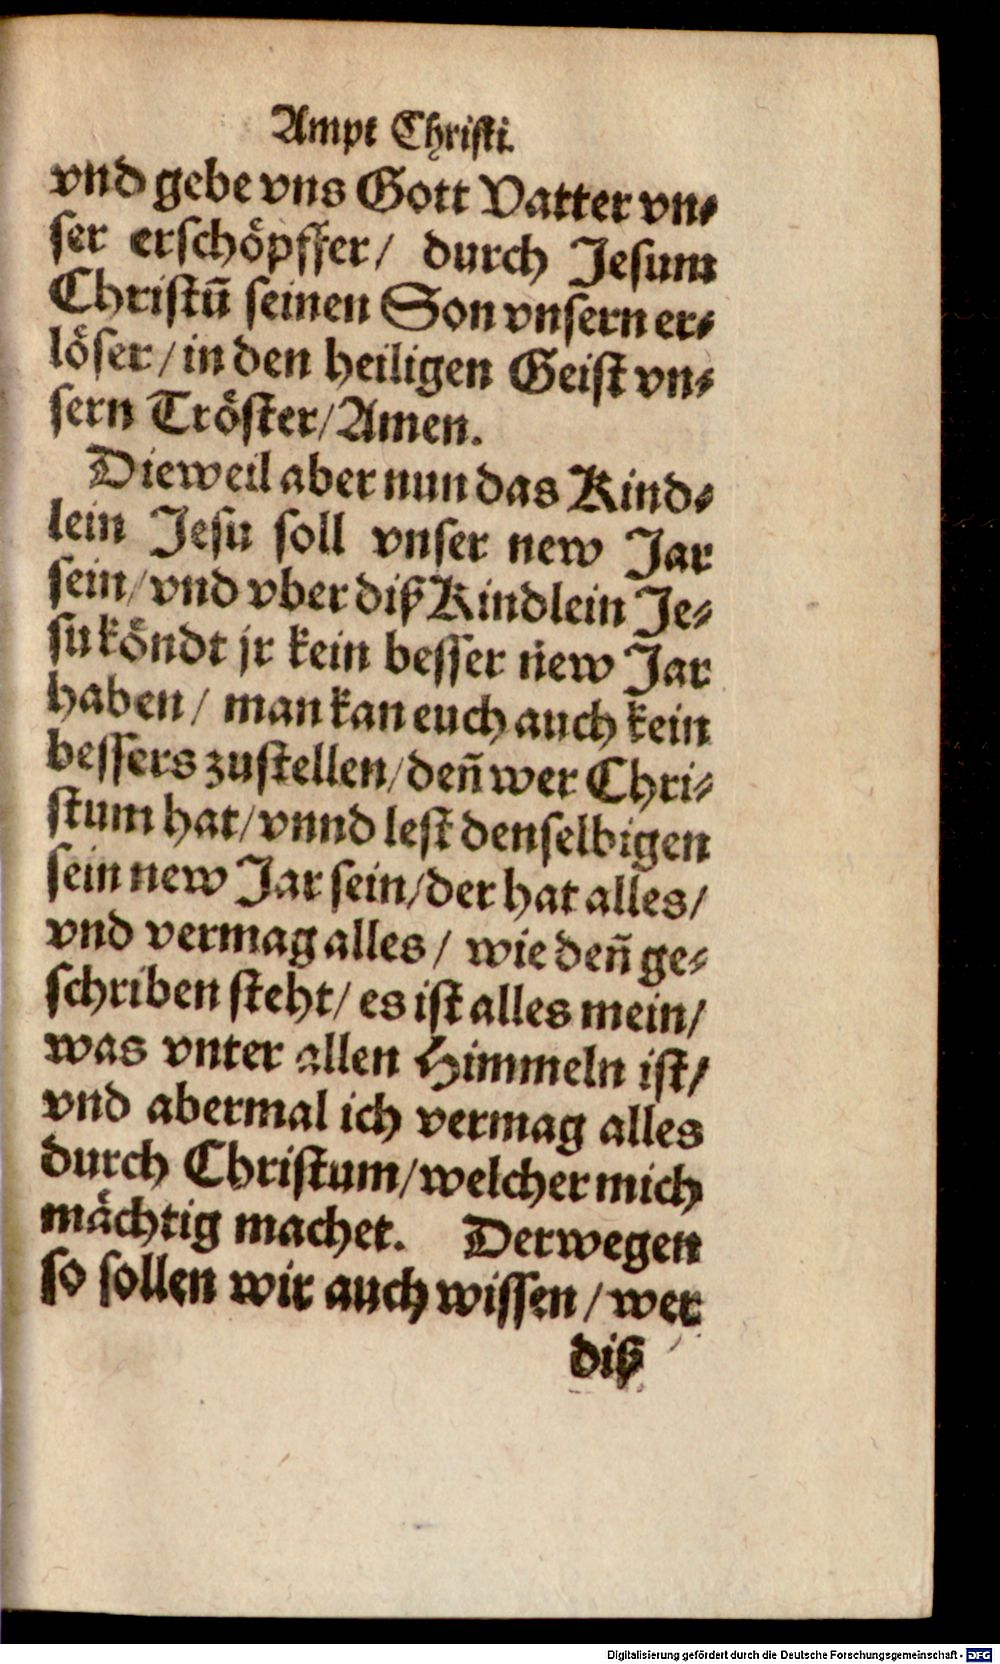 Ampt Christi.
vnd gebe vns Gott Vatter vn⸗
ser erschöpffer/ durch Jesum
Christū seinen Son vnsern er⸗
löser/ in den heiligen Geist vn⸗
sern Tröster/ Amen.
Dieweil aber nun das Kind⸗
lein Jesu soll vnser new Jar
sein/ vnd vber diß Kindlein Je⸗
su köndt jr kein besser new Jar
haben/ man kan euch auch kein
bessers zustellen/ den̄ wer Chri⸗
stum hat/ vnnd lest denselbigen
sein new Jar sein/ der hat alles/
vnd vermag alles/ wie den̄ ge⸗
schriben steht/ es ist alles mein/
was vnter allen Himmeln ist/
vnd abermal ich vermag alles
durch Christum/ welcher mich
mächtig machet. Derwegen
so sollen wir auch wissen/ wer
diß
Digitalisierung gefördert durch die Deutsche Forschungsgemeinschaft - DFG